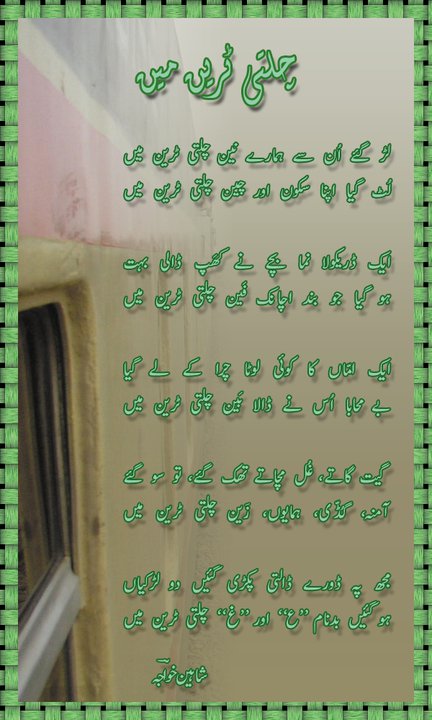 چلتی ٹرین میں
لڑ گئے اُن سے ہمارے نین چلتی ٹرین میں
لُٹ گیا اپنا سکون اور چین چلتی ٹرین میں
ایک ڈریکولا نما بچے نے کھَپ ڈالی بہت
ہو گیا جو بند اچانک فین چلتی ٹرین میں
ایک امّاں کا کوئی لوٹا چرا کے لے گیا
بے محابا اُس نے ڈالا بَین چلتی ٹرین میں
گیت گاتے، غُل مچاتے تھک گئے، تو سو گئے
آمنہ، گڈّی، ہمایوں، زین چلتی ٹرین میں
مجھ پہ ڈورے ڈالتی پکڑی گئیں دو لڑکیاں
ہو گئیں بدنام ”ع“ اور ”غ“ چلتی ٹرین میں
شاہین خواجہ